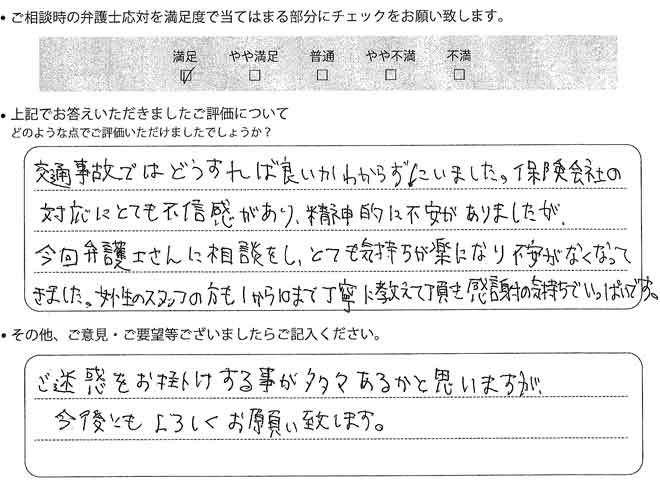 • ご相談時の弁護士応対を満足度で当てはまる部分にチェックをお願い致します。
満足 やや満足 普通 やや不満 不満
☑ □ □ □ □
• 上記でお答えいただきましたご評価について
どのような点でご評価いただけましたでしょうか？
交通事故ではどうすれば良いかわからずにいました。保険会社の
対応にとても不信感があり、精神的に不安がありましたが、
今回弁護士さんに相談をし、とても気持ちが楽になり不安がなくなって
きました。先生のスタッフの方も1から10まで丁寧に教えて頂き感謝の気持ちでいっぱいです。
• その他、ご意見・ご要望等ございましたらご記入ください。
ご迷惑をお掛けする事が多々あるかと思いますが、
今後ともよろしくお願い致します。